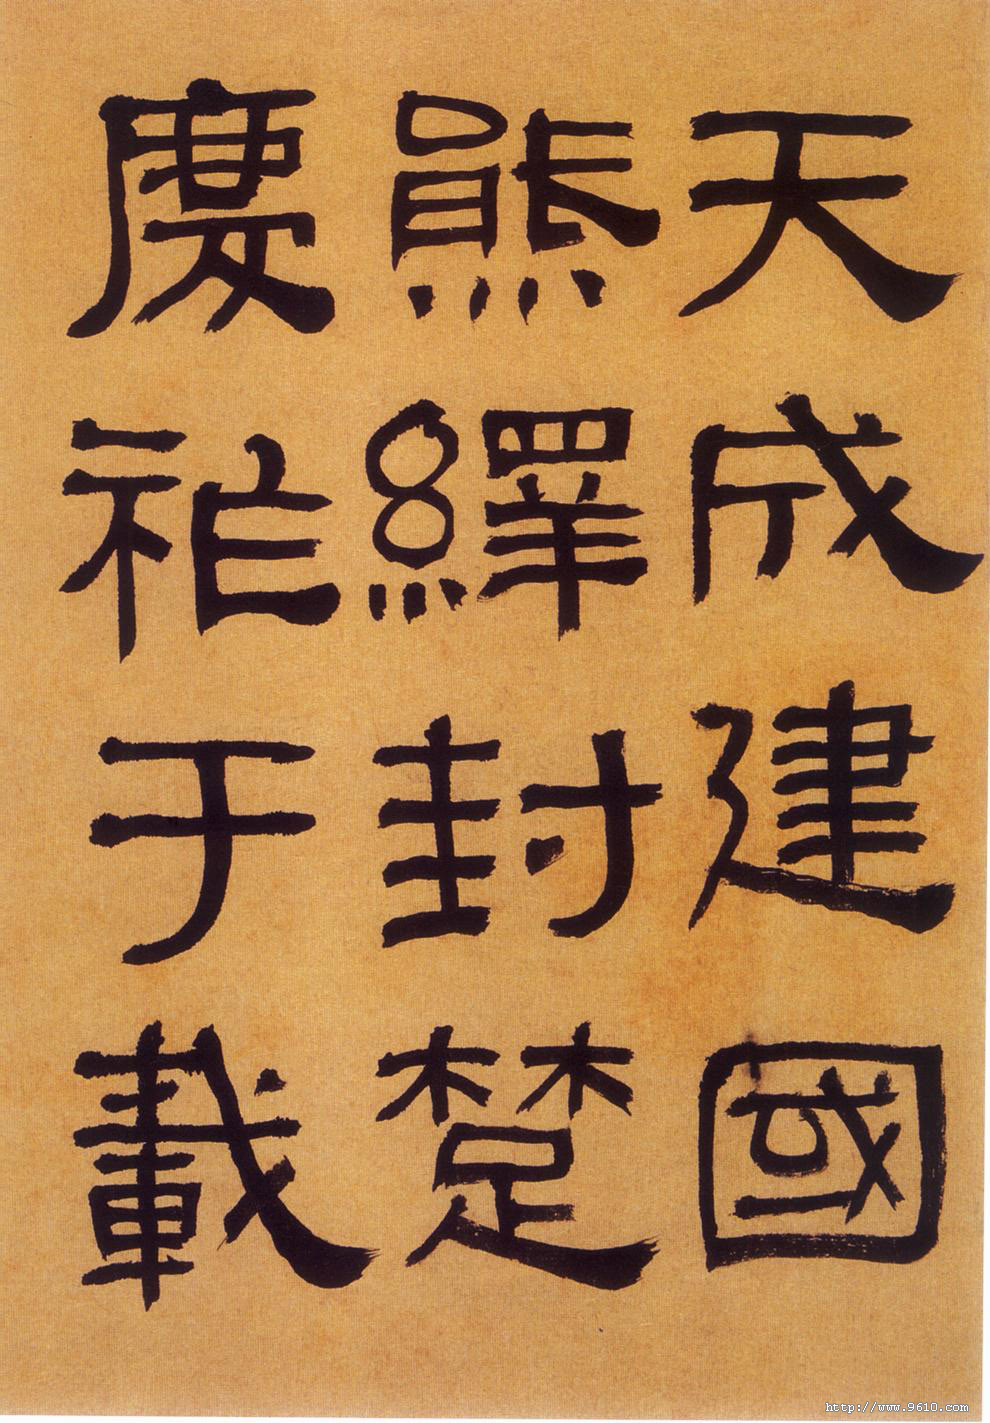 天成建國
熊繹封楚
慶祚于載
http://www.9610.com